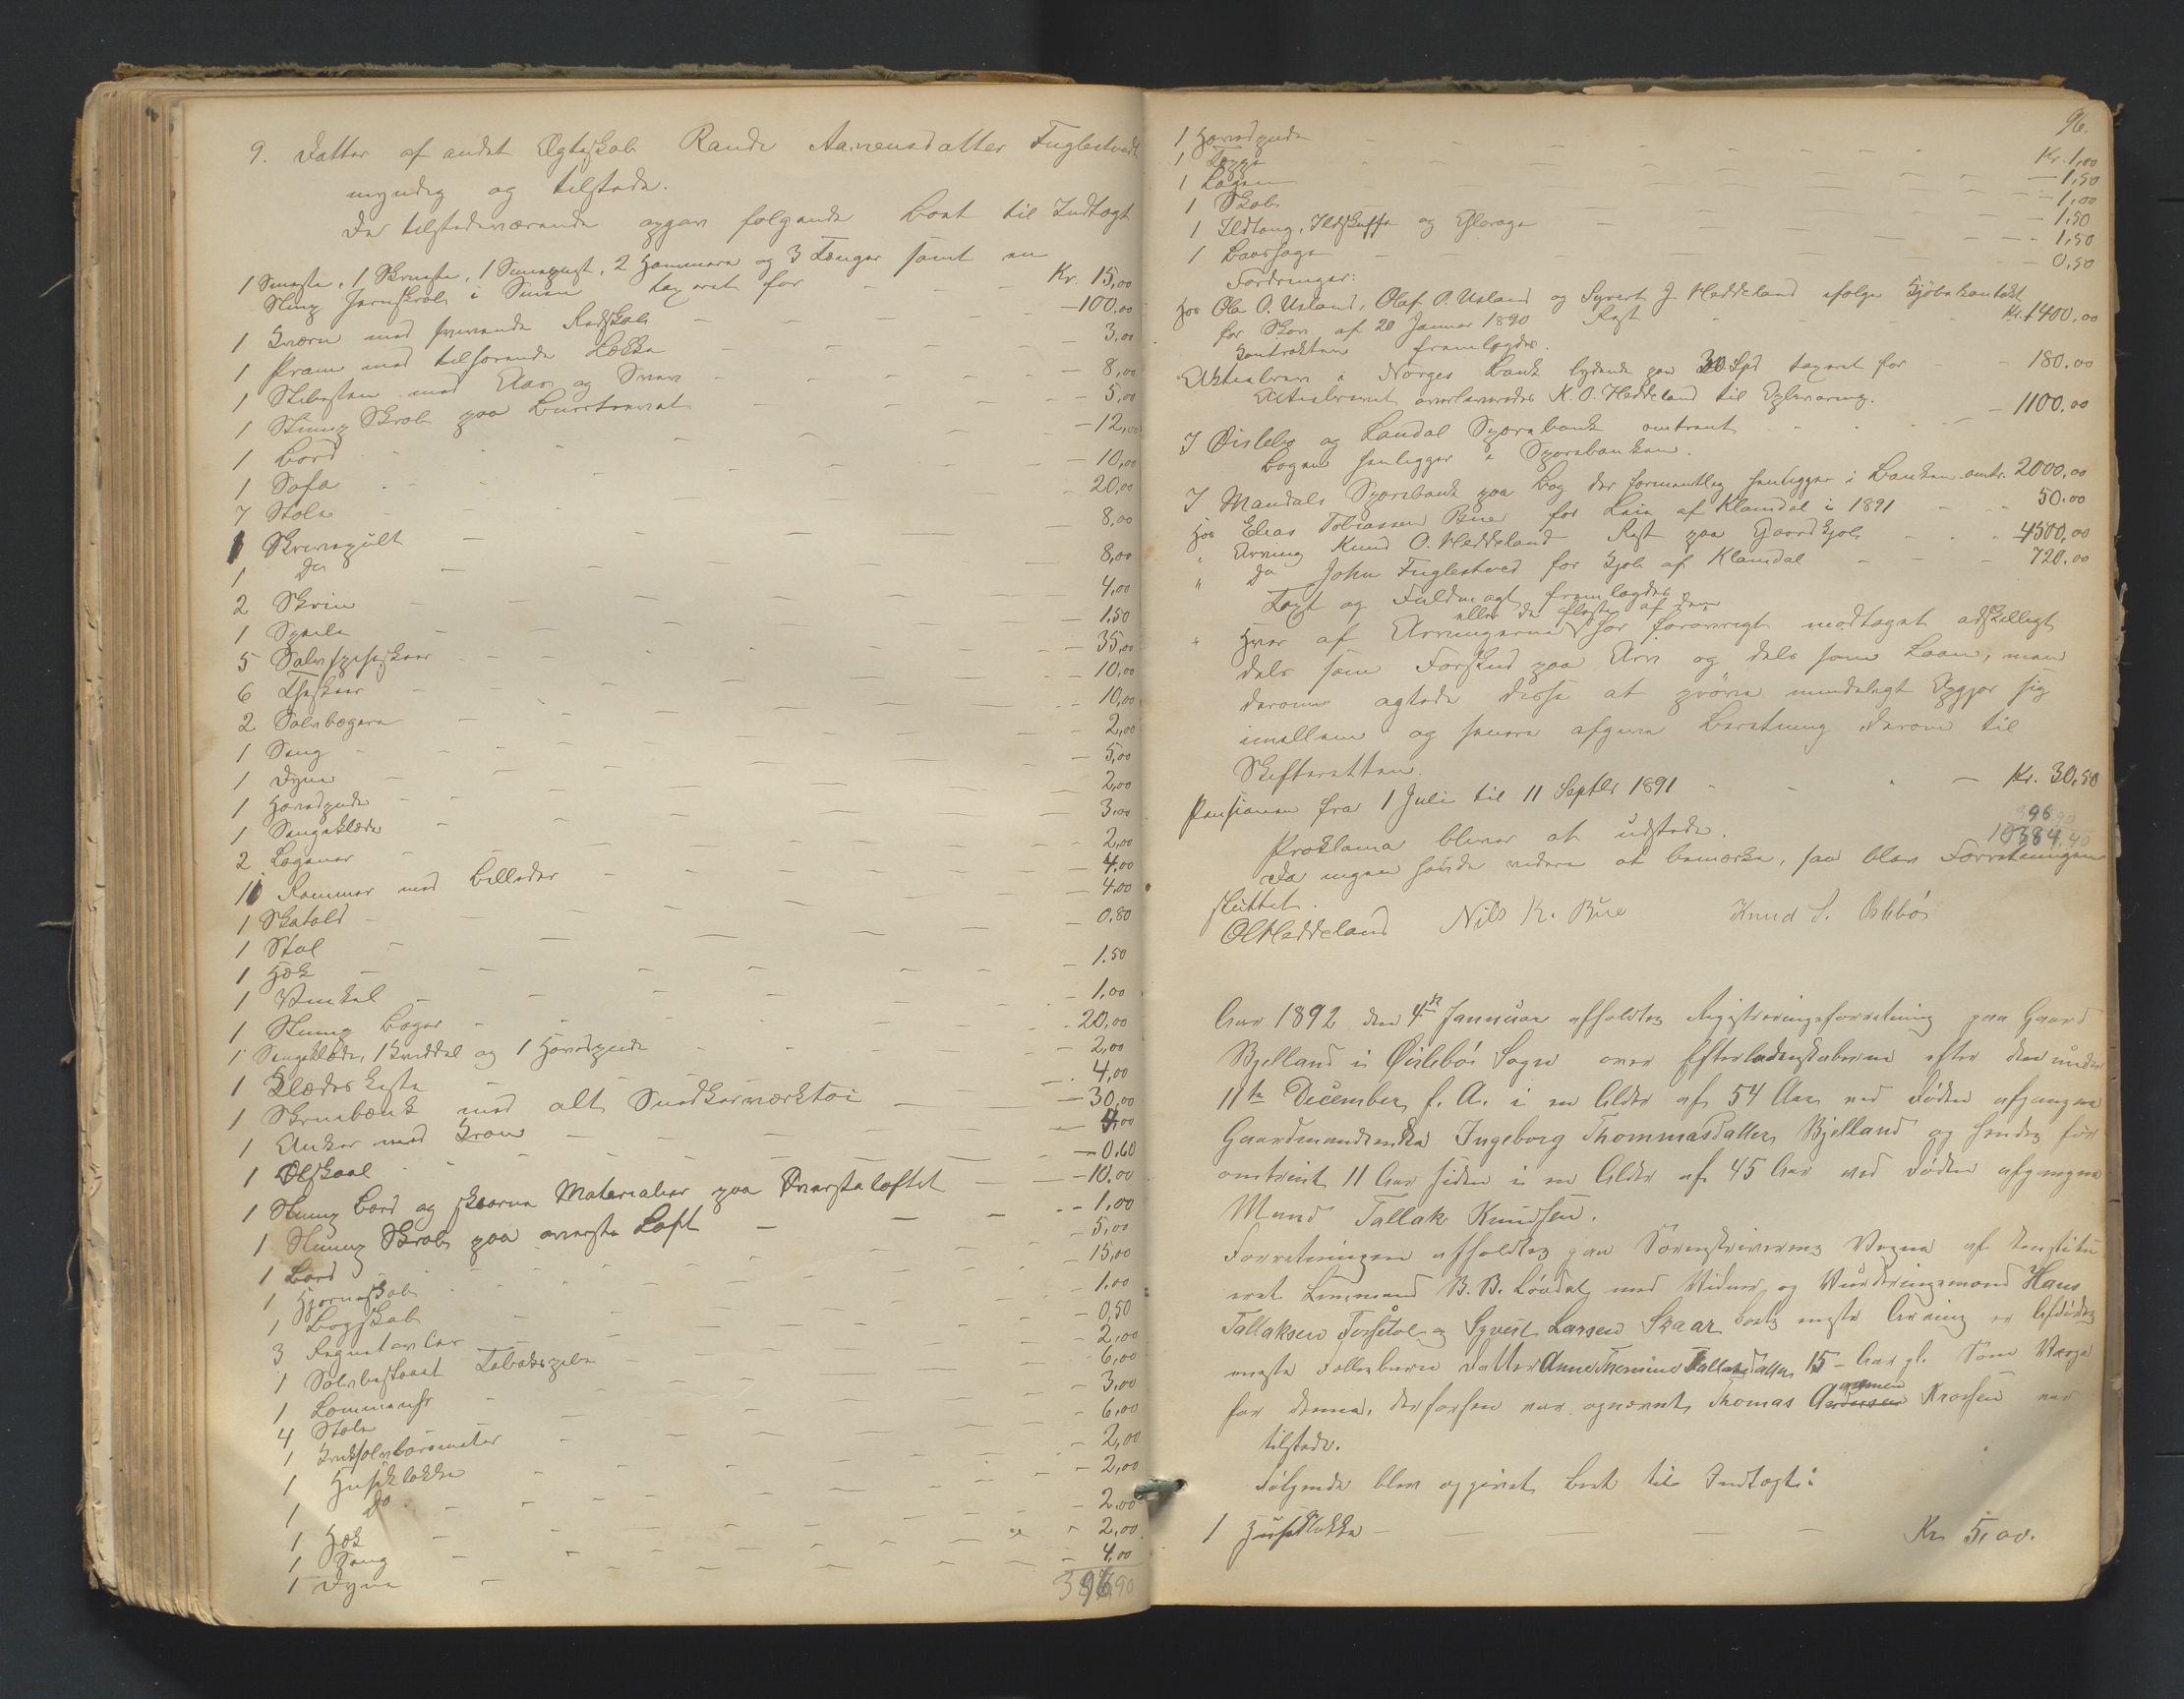 9. Datter af andet Ægteskab Rande Aanensdatter Fuglestvedt
myndig og tilstede.
De tilstedeværende opgav følgende Boet til Indtægt
1 Smiste, 1 Skrueste, 1 2 Hammere og 3 Tænger samt en
Slump Jernskrab i Smien taxeret for Kr. 15,00
1 Kværn med Redskab - 100,00
1 Pram med tilhørende Lække 3,00
1 Slibesten med - 8,00
1 Slump Skrab paa - 5,00
1 Bord - 12,00
1 Sofa - 10,00
7 Stole - 20,00
1 Skrivepult - 8,00
1 Do 8,00
2 Skrin 4,00
1 Speile - 1.50
5 Sølvspiseskeer - 35,00
6 Theskeer - 10,00
2 Sølvbægere - 10,00
1 Seng - 2,00
1 Dyne - 5,00
1 Hovedpude 2,00
1 Sengeklæde - 3,00
2 Lagener - 2,00
11 Rammer med Billeder - 4,00
1 Skatold - 4,00
1 Stol - 0,80
1 Hæk - 1.50
1 Vinkel - 1,00
1 Slump Bøger - 20,00
1 Sengeklæde, 1 Kviddel og 1 Hovedpude - 2,00
1 Klædeskiste - 4,00
1 Skruebænk med alt Snedkerværktøi - 30,00
1 Anker med Kran
1 Ølskaal - 0.60
1 Slump Bord og skaarne Materialier paa Øversteloftet - 10.00
1 Slump Skrab paa øverste Loft - 1,00
1 Bord - 5,00
1 Hjørneskab 15,00
1 Bogskab - 1.00
3 - 0,50
1 Sølvbeslaaet Tobakspibe - 2,00
1 Lommeuhr - 6,00
4 Stole - 3,00
1 Kviksølvbarometer - 6,00
1 Husklokke - 2,00
1 Do - 2,00
1 Hæk - 2,00
1 Seng - 2,00
1 Dyne - 4,00
396,90
96.
1 Hovedpude Kr. 1,00
1 Teppe - 1,50
1 Lagen - 1,00
1 Skab - 1,50
1 Ildtang, Ildskuffe og Glorage - 1,50
1 Baassage - 0,50
Fordringer:
Hos Ole O. Usland, Olaf O. Usland og Syvert J. Heddeland ifølge Kjøbekontrakt
for Skov af 20 Januar 1890 Rest Kr. 1400,00
Kontrakten fremlagdes.
Aktiebrev i Norges Bank lydende paa 30 Spd taxeret for - 180.00
Aktiebrevet overleveredes K. O. Heddeland til Opbevaring.
I Øislebø og Laudal Sparebank omtrent - 1100,00
Bogen henligger i Sparebanken.
I Mandals Sparebank paa Bog der formentlig henligger i Banken omtr. 2000,00
Hos Elias Tobiassen Bue for Leie af Klamdal i 1891 50.00
" Arving Knud O. Heddeland Rest paa Gaardkjøb - 4500,00
" Do John Fuglestved for Kjøb af Klamdal - 720.00
Taxt og Fuldmagt fremlagdes
eller de fleste af dem
" Hver af Arvingerne har forøvrigt modtaget adskilligt
dels som Forskud paa Arv og dels som Laan, men
derom agtede disse at prøve mindeligt Opgjør sig
imellem og senere afgive Beretning derom til
Skifteretten.
Pensionen fra 1 Juli til 11 Septbr 1891 - Kr. 30,50
Proklama bliver at udstede.
Da ingen havde videre at bemærke, saa blev Forretningen
sluttet.
OHeddeland Nils K. Bue Knud S. Øslebø
Aar 1892 den 4de Januar afholdtes Registreringsforretning paa Gaard
Bjelland i Øislebø Sogn over Efterladenskaberne efter den under
11te December f. A. i en Alder af 54 Aar ved Døden afgangne
Gaardmandsenke Ingeborg Thommasdatter Bjelland og hendes for
omtrent 11 Aar siden i en Alder af 45 Aar ved Døden afgangne
Mand Tallak Knudsen.
Forretningen afholdtes paa Sorenskriverens Vegne af konstitu-
eret Lensmand B. B. Løvdal med Vidner og Vurderingsmænd Hans
Tallaksen Fossetøl og Syvert Larsen Skaar. Boets eneste Arving er Afdødes
eneste Fællesbarn Datter Anne Themine Tallaksdatter 15 Aar gl. Som Værge
for denne, der forhen var opnævnt, Thomas Aanensen Krossen var
tilstede.
Følgende blev opgivet Boet til Indtægt:
1 Husklokke - Kr 5,00.